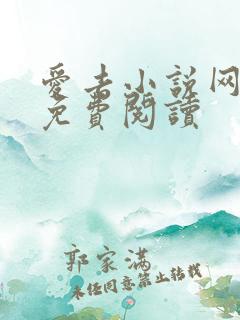 愛去小説网
免費閱讀
郭家满
未经同意禁止转载